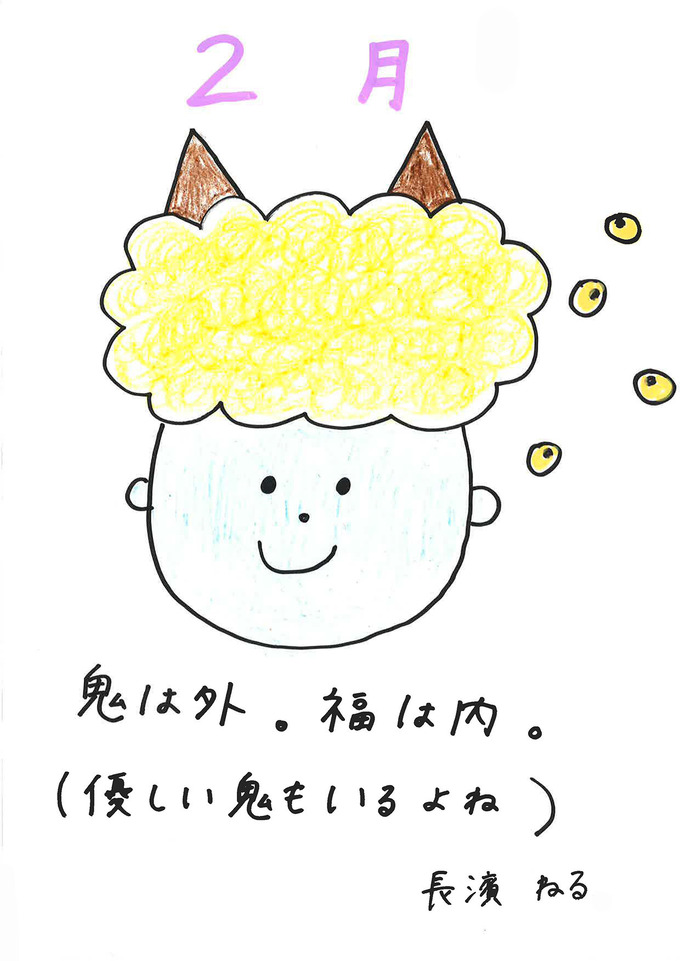 2月
鬼は外。福は内。
(優しい鬼もいるよね)
長濱 ねる